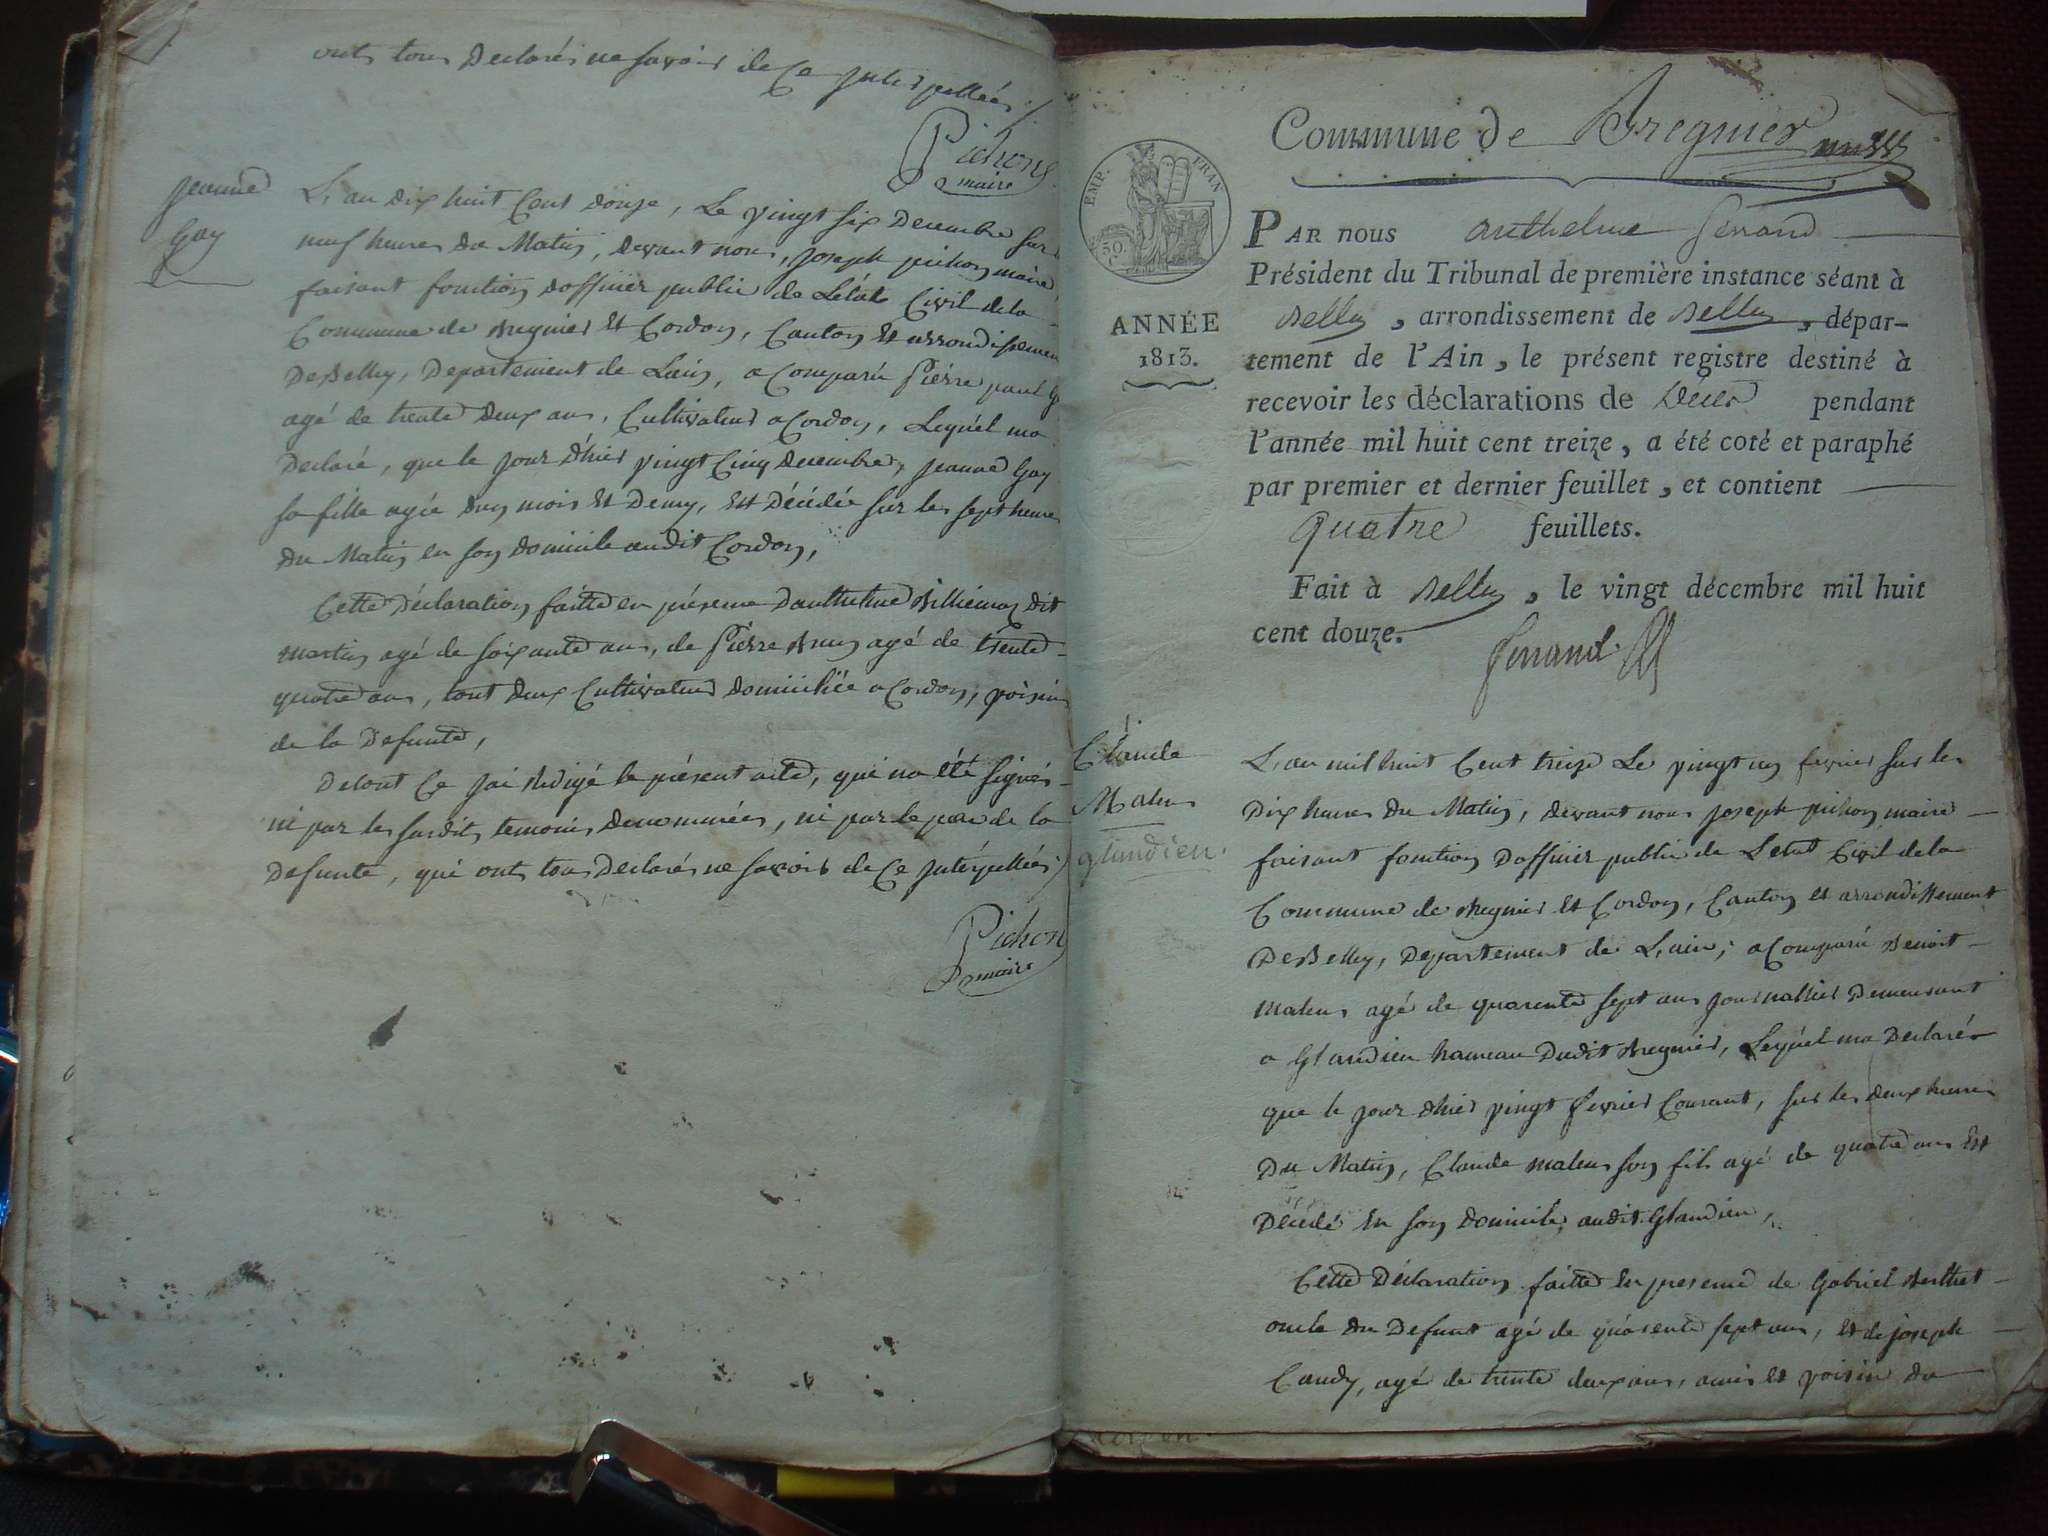 onts tous Declarés ne savoir de Ce jnterpellées./.
Pichon
maire
jeanne
Gay
L'an Dix huit Cent Douze, Le vingt six Decembre sur les
neuf heures du Matin, devant nous, joseph pichon maire,
faisant fonction d'officier public de L'état Civil de la
Commune de Bregnier Et Cordon, Canton Et arrondissement
De Belley, Departement de L'ain, a Comparu Pierre paul G
agé de trente Deux ans, Cultivateur a Cordon, Lequel m'a
Declaré, que le jour d'hier vingt Cinq decembre, jeanne Gay
sa fille agée d'un mois Et Demy, Est Décédée sur les sept heures
du Matin en son domicile audit Cordon,
Cette Déclaration faitte en présence D'anthelme Billiemaz dit
martin agé de soixante ans, de Pierre Brun agé de trente
quatre ans, tout deux Cultivateur domiciliée a Cordon, voisin
de la Defunte,
De tout Ce j'ai Redigé le présent acte, qui n'a été signés
ni par les susdits temoins denommées, ni par le pere de la
Defunte, qui onts tous Declarés ne savoir de Ce jnterpellées ./.
Pichon
maire
Commune de Bregnier
EMP. FRAN
50. C.
PAR nous anthelme ferrand
Président du Tribunal de première instance séant à
ANNÉE
1813.
Belley, arrondissement de Belley, dépar-
tement de l'Ain, le présent registre destiné à
recevoir les déclarations de Décès pendant
l'année mil huit cent treize, a été coté et paraphé
par premier et dernier feuillet, et contient
quatre feuillets.
Fait à Belley, le vingt décembre mil huit
cent douze.
ferrand
Claude
Maleu
glandieu.
L'an mil huit Cent treize Le vingt un fevrier sur les
Dix heures du Matin, devant nous joseph pichon maire
faisant fonction D'officier public de L'etat Civil de la
Commune de Bregnier Et Cordon, Canton et arrondissement
De Belley, Departement de L'ain, a Comparu Benoit
maleu agé de quarente sept ans journallier Demeurant
a Glandieu hameau Dudit Bregnier, Lequel m'a Declarés
que le jour d'hier vingt fevrier Courant, sur les deux heures
Du Matin, Claude maleu son fils agé de quatre ans Est
Décédé En son domicile, audit Glandieu,
Cette Déclaration faitte En presence de Gabriel Berthet
oncle du Defunt agé de quarente sept ans, Et de joseph
Caudy, agé de trente deux ans, amis Et voisin du